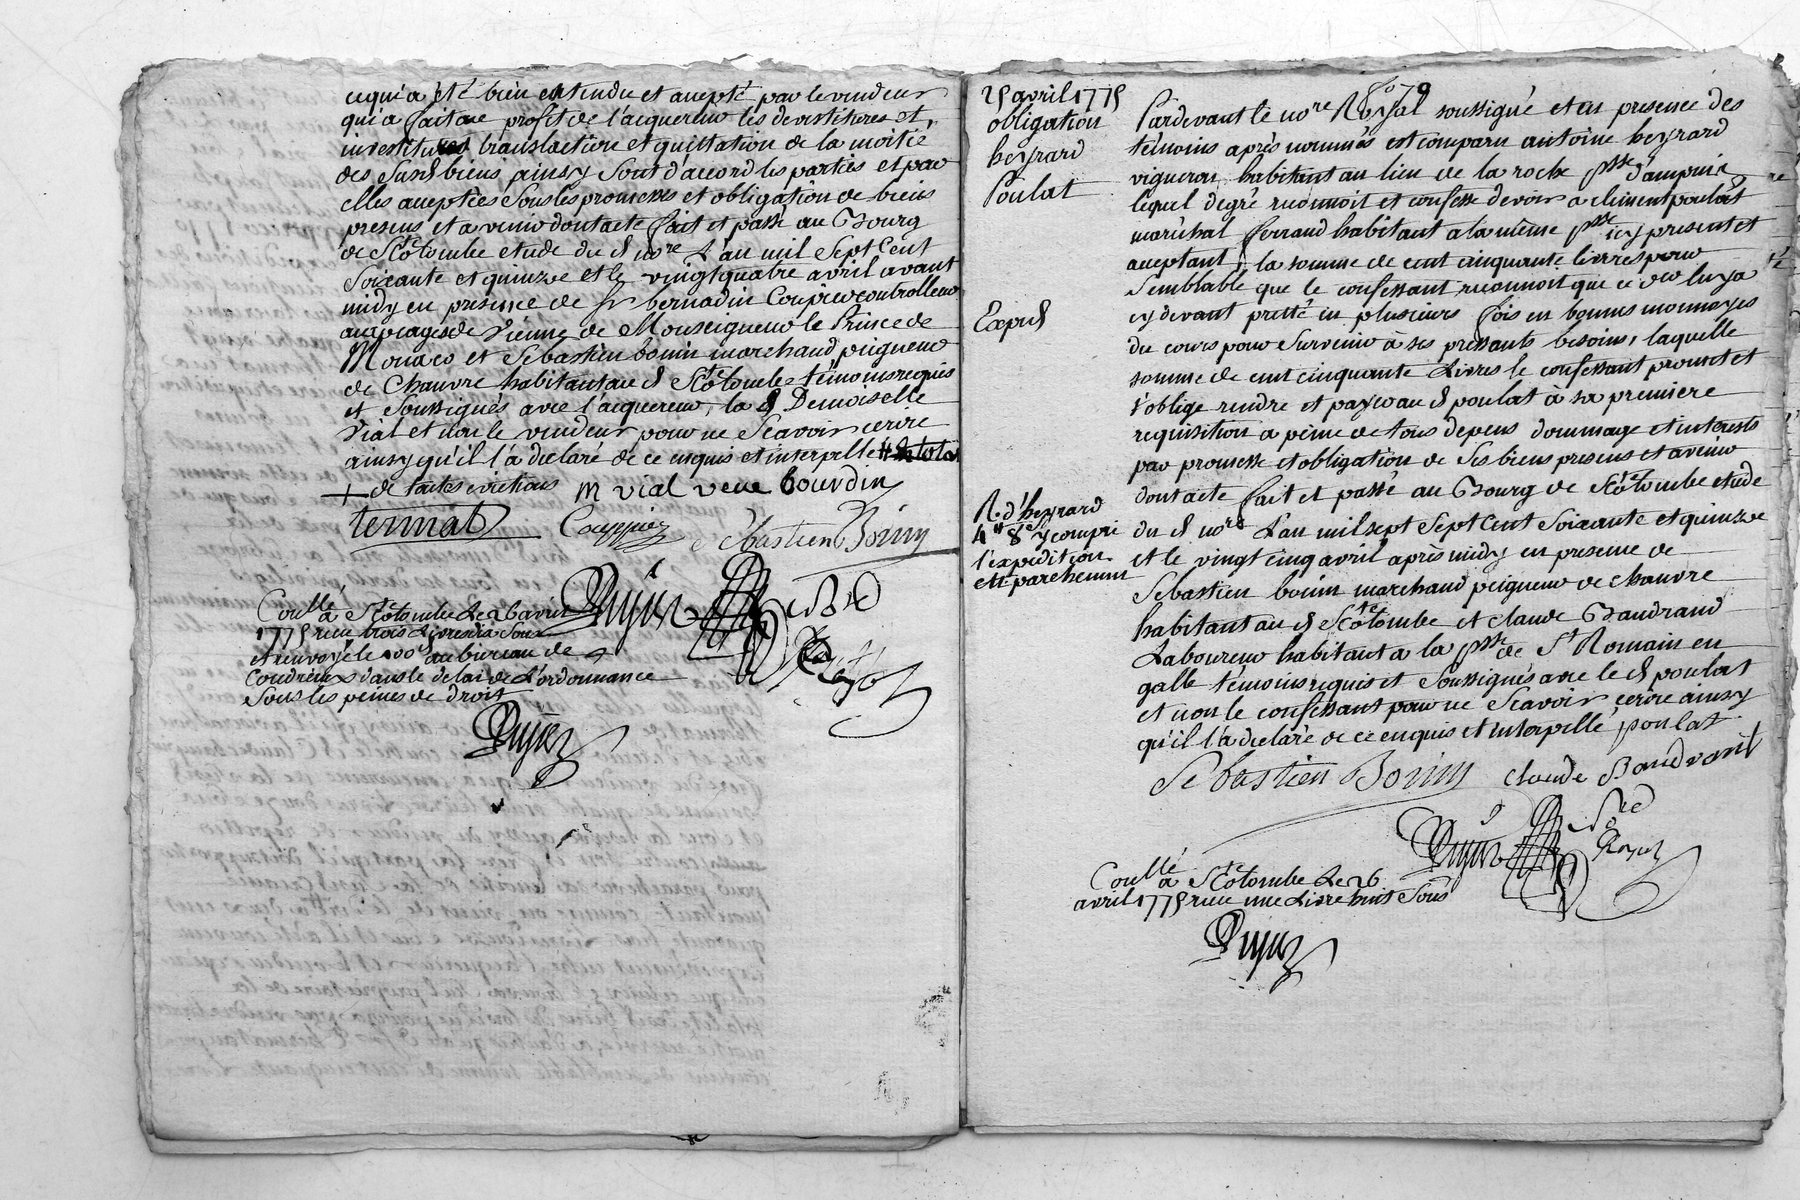 ce qui a eté bien entendu et accepté par le vendeur
qui a fait au profit de l'acquereur les devestitures et
investitures translaction et quittation de la moitié
des susd biens, ainsy sont d'accord les parties et par
elles acceptées sous les promesses et obligation de biens
presens et a venir dont acte fait et passé au Bourg
de Ste Colombe etude du d nore L'an mil sept cent
soixante et quinze et le vingt quatre avril avant
midy en presence de Sr bernadin Couprier controlleur
aux peages de vienne de Monseigneur le Prince de
Monaco et sebastien bonin marchand peigneur
de Chanvre habitant au d Ste Colombe temoins requis
et soussignés avec l'acquereur, la d Demoiselle
vial et non le vendeur pour ne scavoir ecrire
ainsy qu'il l'a declaré de ce enquis et interpellé
m vial veuve bourdin
termat
Sebastien Bonin
Conllé
a Ste Colombe Le 26 avril
1775 reçu trois Livres dix sous
et renvoyé le au bureau de
Condrieux dans le delai de L'ordonnance
sous les peines de droit
fo 79
25 avril 1775
obligation
heyrard
Poulat
Pardevant le nore Royal soussigné et en presence des
témoins après nommés est comparu antoine heyrard
vigneron habitant au lieu de la roche psse d'ampuis
lequel de gré reconnoit et confesse devoir a climent poulat
maréchal ferrand habitant a la même psse icy present et
acceptant, la somme de cent cinquante livres pour
semblable que le confessant reconnoit que ce der luy a
cy devant pretté en plusieurs fois en bonnes monnoyes
Exped
du cours pour survenir à ses pressants besoins, laquelle
somme de cent cinquante Livres le confessant promet et
s'oblige rendre et payer au d poulat à sa premiere
requisition a peine de tous depens dommage et interests
par promesse et obligation de ses biens presens et avenir
dont acte fait et passé au Bourg de Ste Colombe etude
R. d'heyrard
4# 8s y compri
l'expedition
en parchemin
du d nore L'an mil sept sept cent soixante et quinze
et le vingt cinq avril après midy en presence de
Sebastien bonin marchand peigneur de chanvre
habitant au d Ste Colombe et claude Baudrand
Laboureur habitant a la psse de St Romain en
galle témoins requis et soussignés avec le d poulat
et non le confessant pour ne scavoir ecrire ainsy
qu'il l'a declaré de ce enquis et interpellé poulat
Sebastien Bonin claude Baudrant
Conllé
a Ste Colombe Le 26
avril 1775 reçu une Livre huit sous